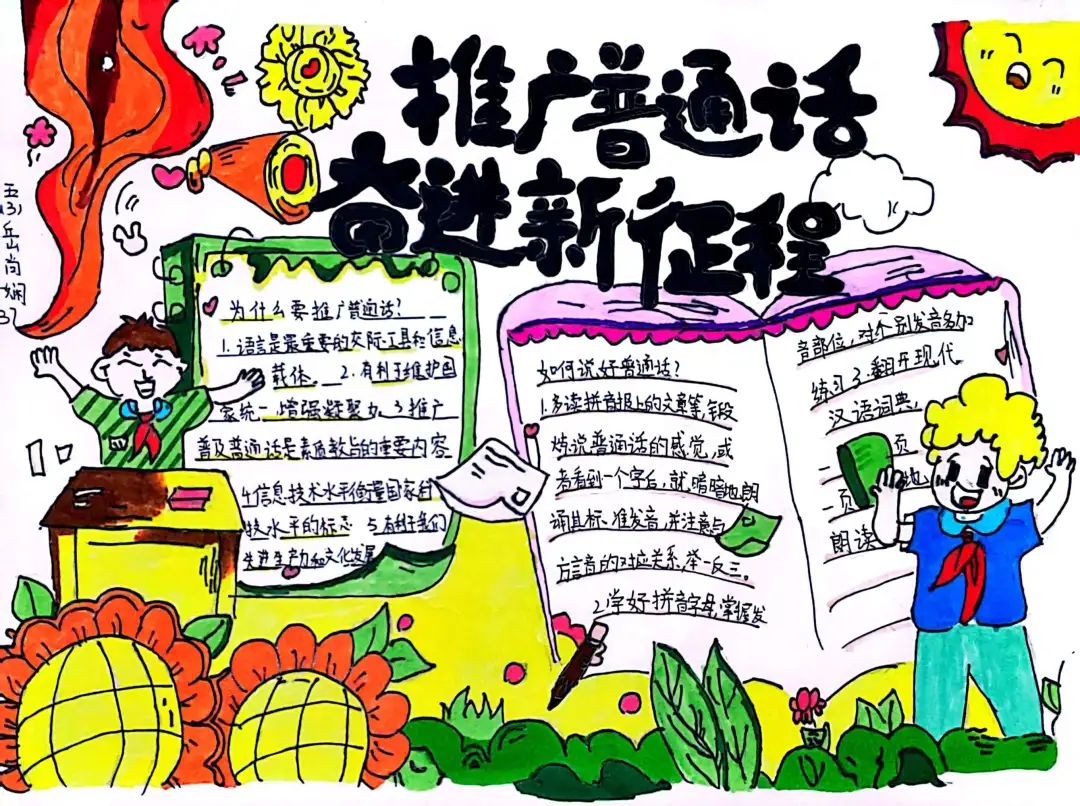 推广普通话
奋进新征程
五(3)
岳尚娴
37
为什么要推广普通话?
1.语言是最重要的交际工具和信息
载体. 2.有利于维护国
家统一,增强凝聚力.3推广
普及普通话是素质教育的重要内容
4.信息技术水平衡量国家科
技水平的标志 5.有利于我们
先进生产力和文化发展
如何说好普通话?
1.多读拼音报上的文章等,锻
炼说普通话的感觉,或
者看到一个字后,就暗暗地朗
诵其标准发音,并注意与
方言音的对应关系,举一反三。
2.学好拼音字母,掌握发
音部位,对个别发音多加
练习3.翻开现代
汉语词典,
一页
一页地
朗读